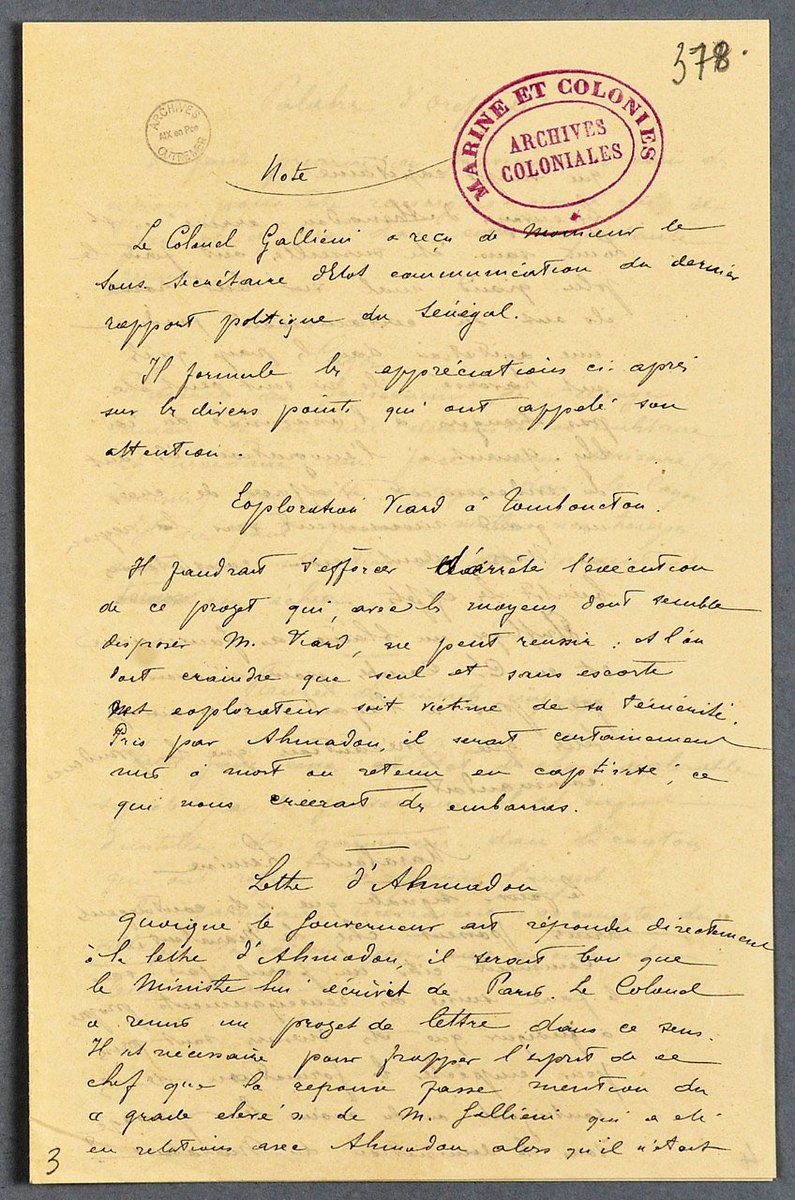 378.
ARCHIVES
AIX en Pce
OUTREMER
MARINE ET COLONIES
ARCHIVES
COLONIALES
Note
Le Colonel Galliéni a reçu de Monsieur le
sous secrétaire d'Etat communication du dernier
rapport politique du Sénégal.
Il formule les appréciations ci-après
sur les divers points qui ont appelé son
attention.
Exploration Viard à Tombouctou.
Il faudrait s'efforcer d'arrêter l'exécution
de ce projet qui, avec les moyens dont semble
disposer M. Viard, ne peut réussir. Et l'on
doit craindre que seul et sans escorte
cet explorateur soit victime de sa témérité.
Pris par Ahmadou, il serait certainement
mis à mort ou retenu en captivité; ce
qui nous créerait des embarras.
Lettre d'Ahmadou
Quoique le Gouverneur ait répondu directement
à la lettre d'Ahmadou, il serait bon que
le Ministre lui écrivît de Paris. Le Colonel
a remis un projet de lettre dans ce sens.
Il est nécessaire pour frapper l'esprit de ce
chef que la réponse fasse mention du
« grade élevé » de M. Galliéni qui a été
en relations avec Ahmadou alors qu'il n'était
3